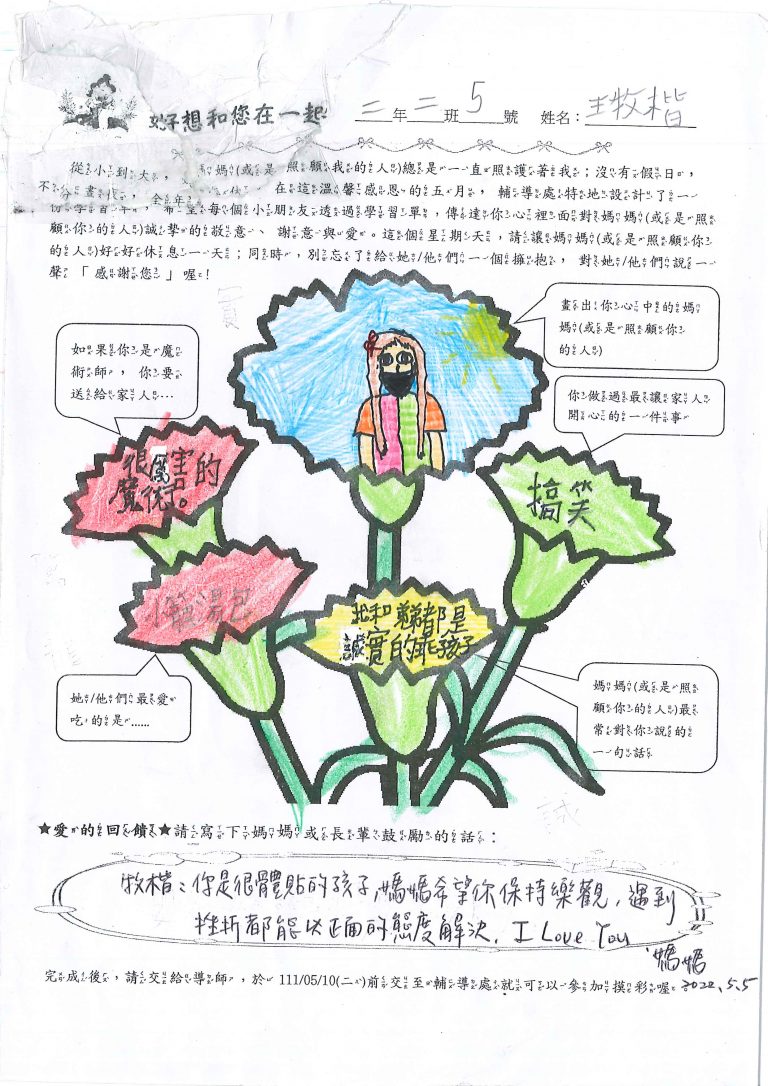 好想和您在一起
三年二班5號 姓名：王牧楷
從小到大，媽(或是照顧我的人)總是一直照護著我；沒有假日，
不分晝夜，全年 在這溫馨感恩的五月，輔導處特地設計了一
份學習單，希望每個小朋友透過學習單，傳達你心裡面對媽媽(或是照
顧你的人)誠摯的敬意、謝意與愛。這個星期天，請讓媽媽(或是照顧你
的人)好好休息一天；同時，別忘了給她/他們一個擁抱，對她/他們說一
聲「感謝您」喔！
畫出你心中的媽
媽(或是照顧你
的人)
如果你是魔
術師，你要
送給家人…
你做過最讓家人
開心的一件事
很厲害的
魔術。
搞笑
小籠湯包
我和弟弟都是
誠實的乖孩子
她/他們最愛
吃的是……
媽媽(或是照
顧你的人)最
常對你說的
一句話
★愛的回饋★請寫下媽媽或長輩鼓勵的話：
牧楷：你是很體貼的孩子，媽媽希望你保持樂觀，遇到
挫折都能以正面的態度解決，I Love You
媽媽
2022.5.5
完成後，請交給導師，於 111/05/10(二)前交至輔導處就可以參加摸彩喔